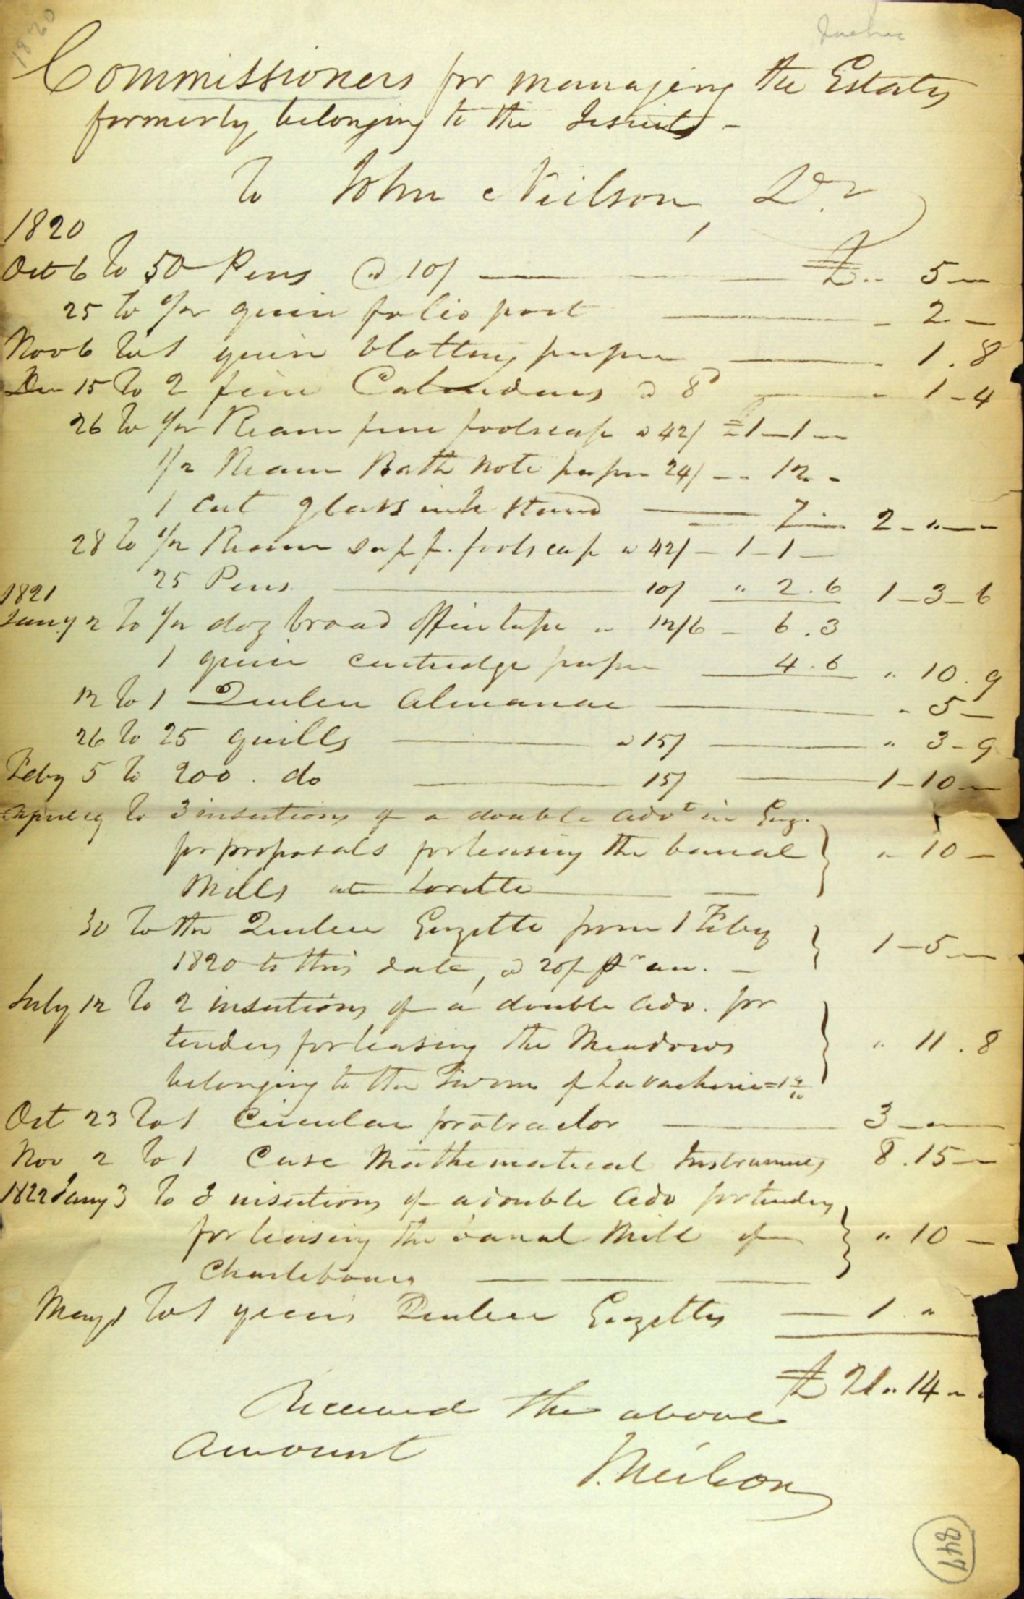 1820
Quebec
Commissioners for managing the Estates
formerly belonging to the Jesuits -
To John Neilson, Dr
1820
Oct 6 To 50 Pens @ 10/ — £ .. 5 —
25 to 1/2 quire folio post — 2 —
Nov 6 To 1 quire blotting paper — 1 . 8
Dec 15 To 2 fine Calendars @ 8d — 1 - 4
26 To 1/2 Ream fine foolscap @ 42/ = 1 - 1 —
1/2 Ream Bath note paper 24/ - .. 12 -
1 cut glass ink stand — 7 — 2 - " —
28 to 1/2 Ream sup f. foolscap @ 42/ - 1 - 1 -
25 Pens — 10/ " 2 . 6 1 - 3 - 6
1821
Jany 2 To 1/2 doz broad office tape " 12/6 - 6 . 3
1 quire cartridge paper 4 . 6 " 10 . 9
12 To 1 Quebec Almanac — " 5 -
26 To 25 quills — @ 15/ — " 3 - 9
Feby 5 To 200 . do — 15/ — 1 - 10 —
April 19 To 3 insertions of a double advt in Gaz.
for proposals for leasing the banal } " 10 -
Mills at Lorette —
30 To the Quebec Gazette from 1 Feby
1820 to this date, @ 20/ pr an. - } 1 - 5 —
July 12 To 2 insertions of a double adv. for
tenders for leasing the Meadows } " 11 . 8
belonging to the Farm of Lavacherie
Oct 23 To 1 Circular protractor — 3 - " —
Nov 2 To 1 Case Mathematical Instruments 8 . 15 —
1822 Jany 3 To 3 insertions of a double adv for tenders
for leasing the banal Mill of } " 10 -
Charlebourg — — —
May 1 To 1 year's Quebec Gazette — 1 "
£ 21 " 14 - "
Received the above
amount
J. Neilson
847